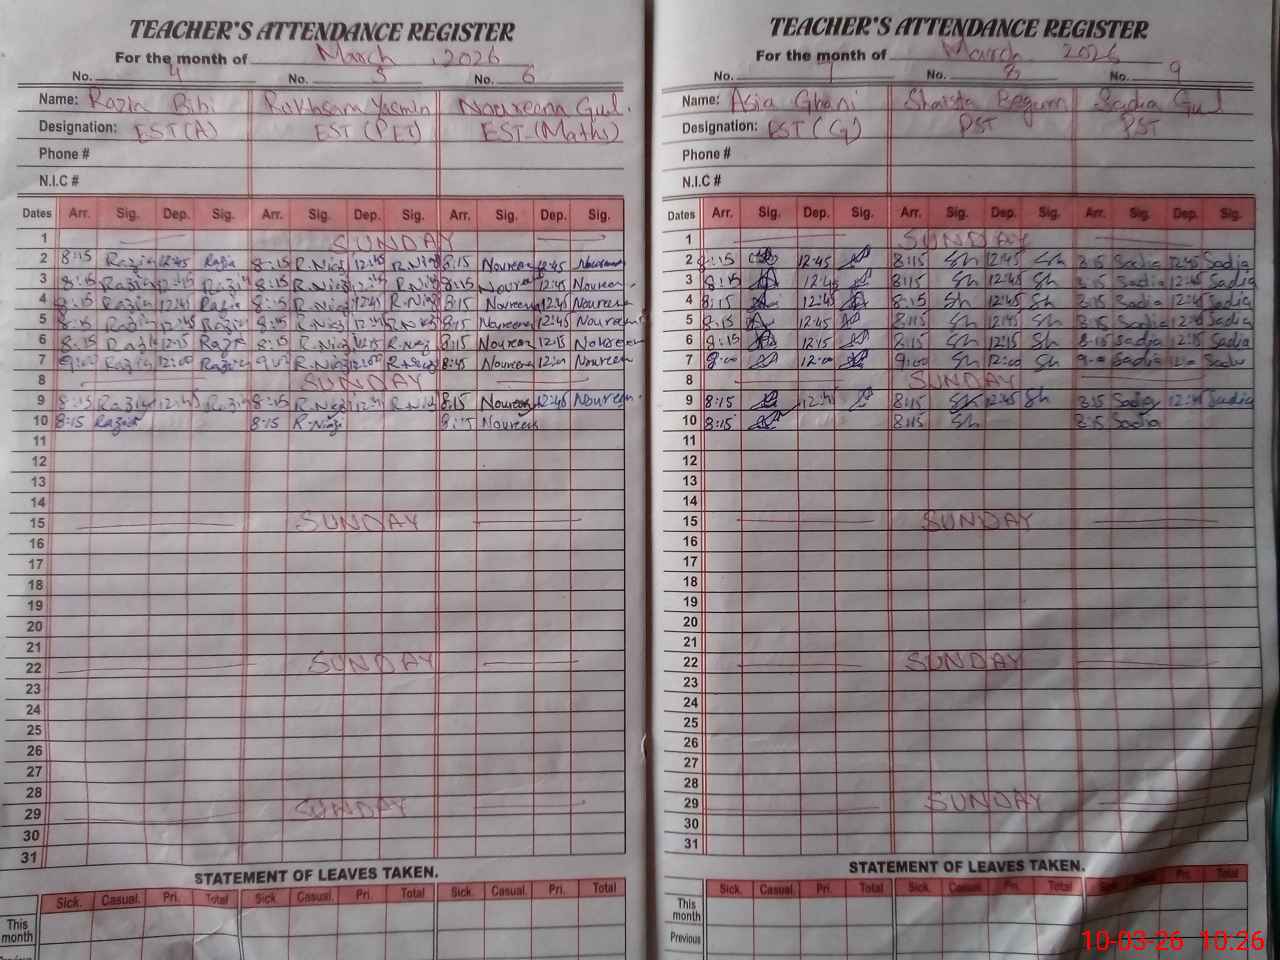 TEACHER'S ATTENDANCE REGISTER
For the month of March, 2026
No. 4 No. 5 No. 6
Name: Razia Bibi Rukhsana Yasmin Noureena Gul.
Designation: EST(A) EST (PET) EST (Maths)
Phone #
N.I.C #
Dates Arr. Sig. Dep. Sig. Arr. Sig. Dep. Sig. Arr. Sig. Dep. Sig.
1 SUNDAY
2 8:15 Razia 12:45 Razia 8:15 R.Niaz 12:45 R.Niaz 8:15 Noureen 12:45 Noureen
3 8:15 Razia 12:45 Razia 8:15 R.Niaz 12:45 R.Niaz 8:15 Noureen 12:45 Noureen
4 8:15 Razia 12:45 Razia 8:15 R.Niaz 12:45 R.Niaz 8:15 Noureen 12:45 Noureen
5 8:15 Razia 12:45 Razia 8:15 R.Niaz 12:45 R.Niaz 8:15 Noureen 12:45 Noureen
6 8:15 Razia 12:15 Razia 8:15 R.Niaz 12:15 R.Niaz 8:15 Noureen 12:15 Noureen
7 9:00 Razia 12:00 Razia 9:00 R.Niaz 12:00 R.Niaz 8:45 Noureen 12:00 Noureen
8 SUNDAY
9 8:15 Razia 12:45 Razia 8:15 R.Niaz R.Niaz 8:15 Noureen 12:45 Noureen
10 8:15 Razia 8:15 R.Niaz 8:15 Noureen
11
12
13
14
15 SUNDAY
16
17
18
19
20
21
22 SUNDAY
23
24
25
26
27
28
29 SUNDAY
30
31
STATEMENT OF LEAVES TAKEN.
Sick. Casual. Pri. Total Sick Casual. Pri. Total Sick. Casual. Pri. Total
This month
TEACHER'S ATTENDANCE REGISTER
For the month of March, 2026
No. 7 No. 8 No. 9
Name: Asia Ghani Shaista Begum Sadia Gul
Designation: EST (G) PST PST
Phone #
N.I.C #
Dates Arr. Sig. Dep. Sig. Arr. Sig. Dep. Sig. Arr. Sig. Dep. Sig.
1 SUNDAY
2 8:15 12:45 8:15 Sh 12:45 Sh 8:15 Sadia 12:45 Sadia
3 8:15 12:45 8:15 Sh 12:45 Sh 8:15 Sadia 12:45 Sadia
4 8:15 12:45 8:15 Sh 12:45 Sh 8:15 Sadia 12:45 Sadia
5 8:15 12:45 8:15 Sh 12:45 Sh 8:15 Sadia 12:45 Sadia
6 8:15 12:15 8:15 Sh 12:15 Sh 8:15 Sadia 12:15 Sadia
7 9:00 12:00 9:00 Sh 12:00 Sh 9:00 Sadia 12:00
8 SUNDAY
9 8:15 8:15 Sh 12:45 Sh 8:15 Sadia 12:45 Sadia
10 8:15 8:15 Sh 8:15 Sadia
11
12
13
14
15 SUNDAY
16
17
18
19
20
21
22 SUNDAY
23
24
25
26
27
28
29 SUNDAY
30
31
STATEMENT OF LEAVES TAKEN.
Sick. Casual. Pri. Total Sick. Casual. Pri. Total Sick. Casual. Pri. Total
This month
Previous
10-03-26 10:26